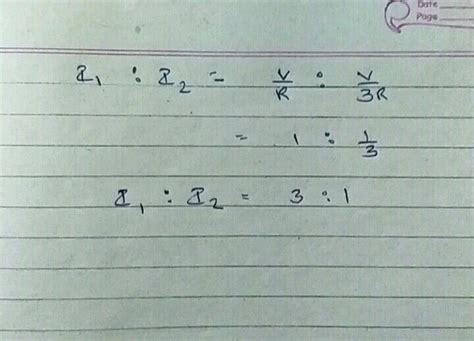 Date
Page
I₁ : I₂ = V/R : V/3R
= 1 : 1/3
I₁ : I₂ = 3 : 1